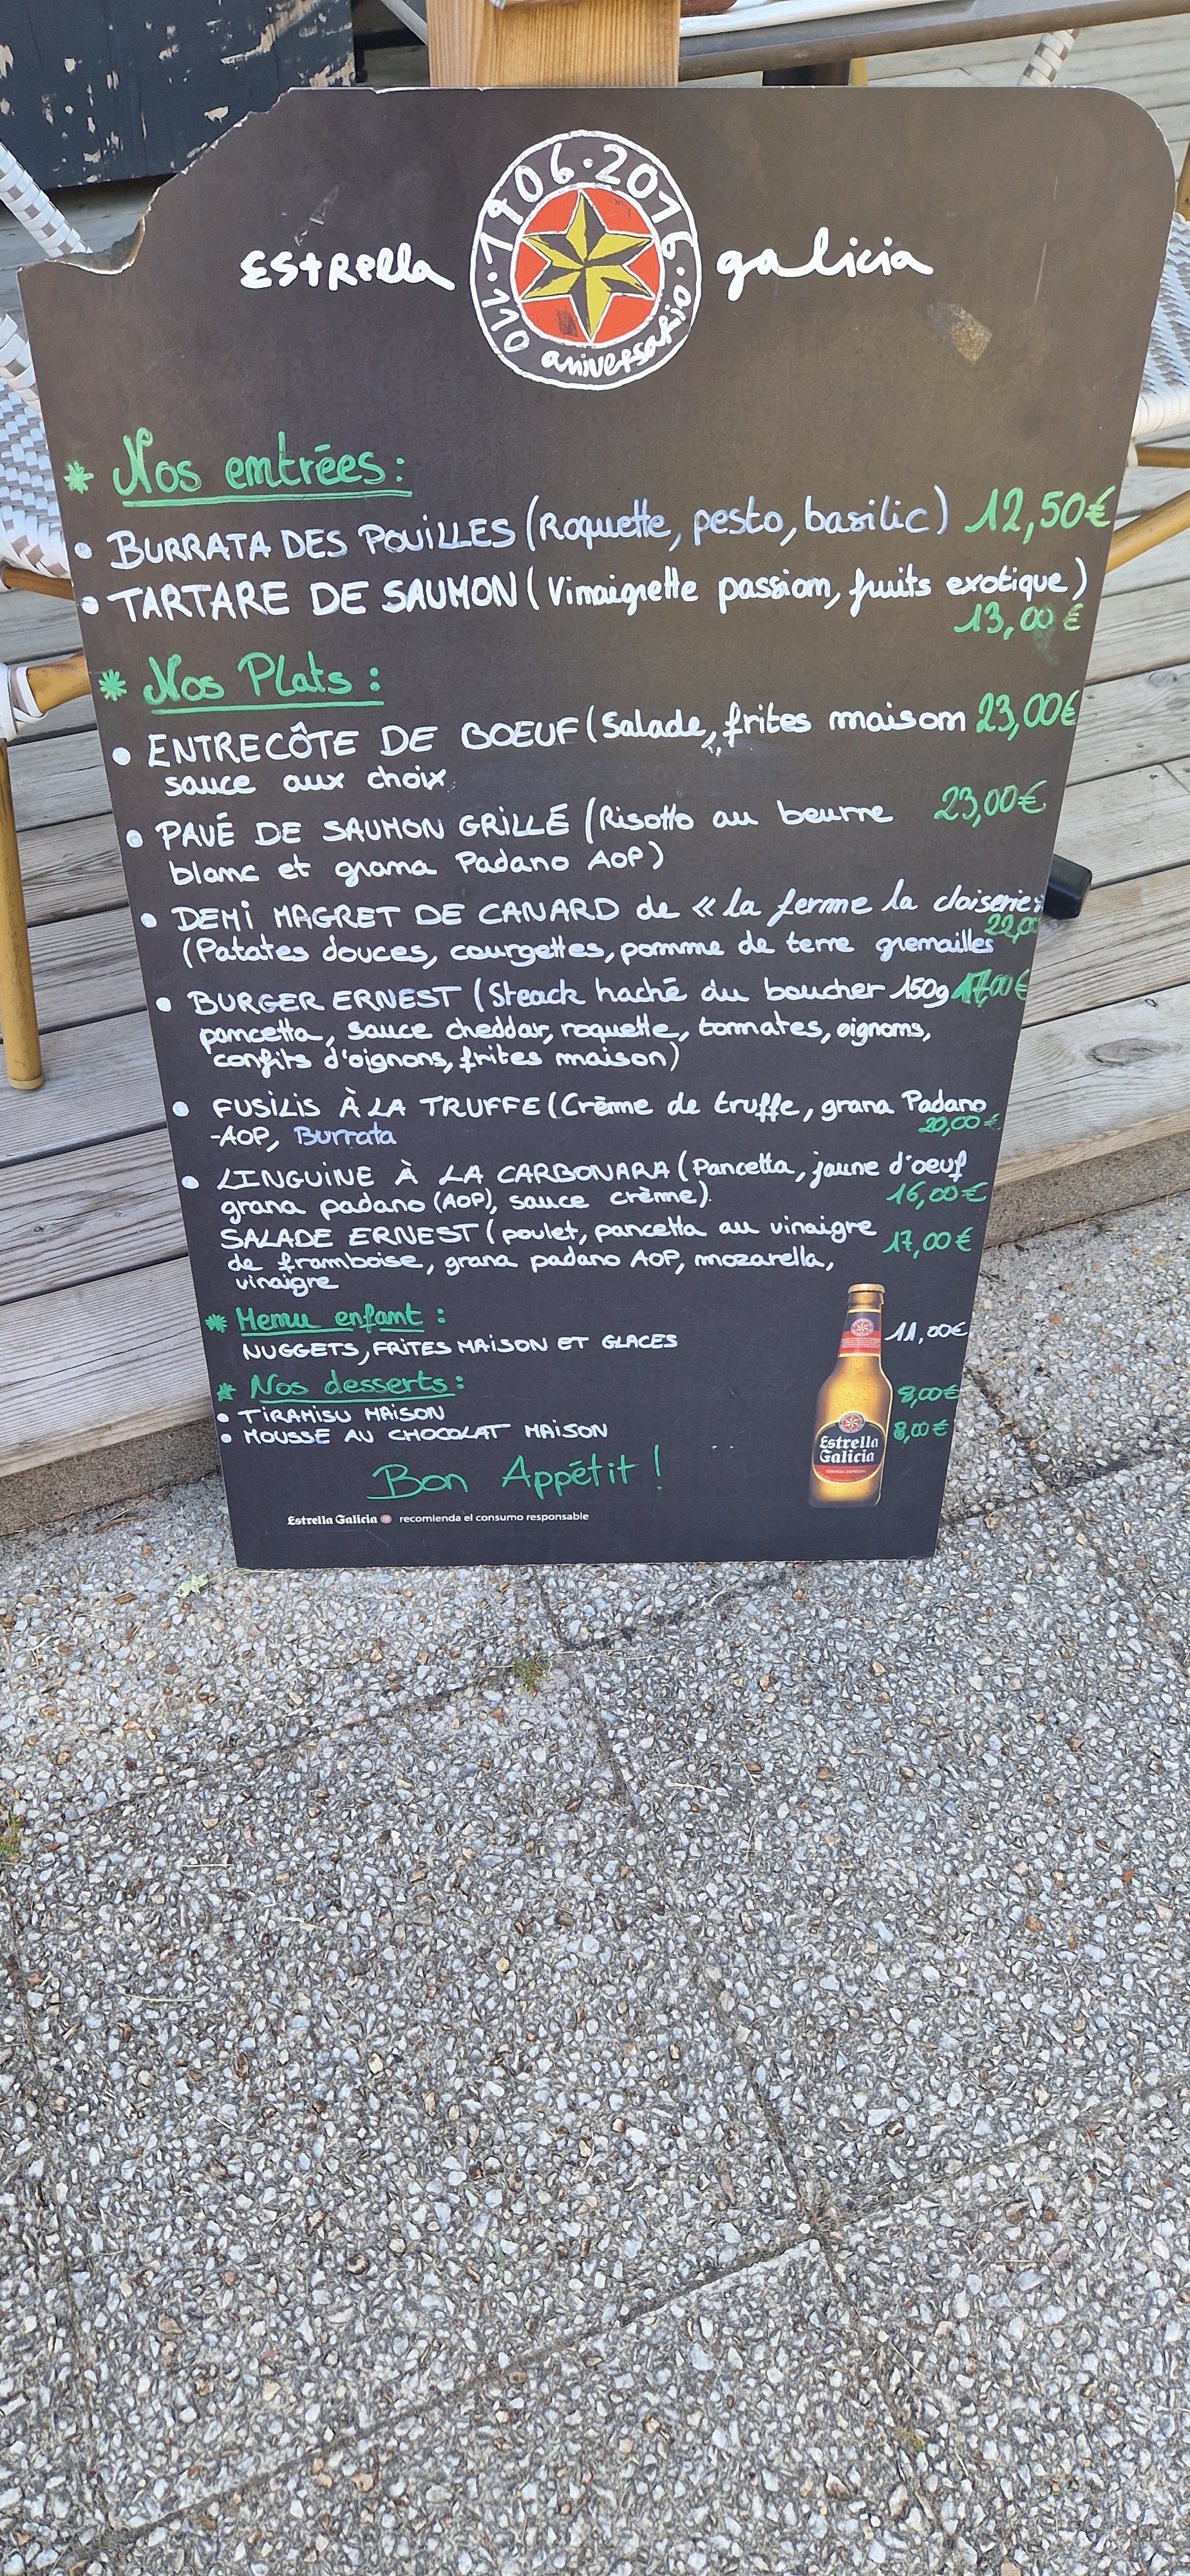 Estrella galicia
1906·2016·110 aniversario
* Nos entrées:
• BURRATA DES POUILLES (Roquette, pesto, basilic) 12,50€
• TARTARE DE SAUMON (Vinaigrette passion, fruits exotique)
13,00 €
* Nos Plats :
• ENTRECÔTE DE BOEUF (Salade, frites maison 23,00€
sauce aux choix
• PAVÉ DE SAUMON GRILLÉ (Risotto au beurre 23,00€
blanc et grana Padano AOP)
• DEMI MAGRET DE CANARD de « la ferme la cloiserie»
22,00
(Patates douces, courgettes, pomme de terre grenailles
• BURGER ERNEST (Steack haché du boucher 150g 17,00€
pancetta, sauce cheddar, roquette, tomates, oignons,
confits d'oignons, frites maison)
• FUSILIS À LA TRUFFE (Crème de truffe, grana Padano
20,00€
-AOP, Burrata
• LINGUINE À LA CARBONARA (Pancetta, jaune d'oeuf
grana padano (AOP), sauce crème). 16,00€
SALADE ERNEST (poulet, pancetta au vinaigre 17,00€
de framboise, grana padano AOP, mozarella,
vinaigre
* Menu enfant :
NUGGETS, FRITES MAISON ET GLACES 11,00€
* Nos desserts :
• TIRAMISU MAISON 8,00€
• MOUSSE AU CHOCOLAT MAISON 8,00€
Bon Appétit !
Estrella
Galicia
CERVEZA ESPECIAL
Estrella Galicia recomienda el consumo responsable